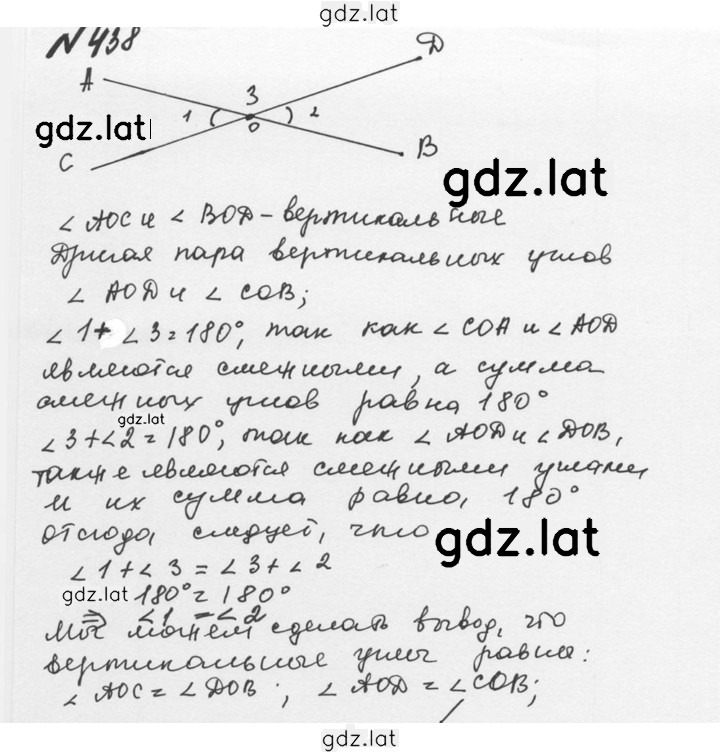 gdz.lat
N 438
A
D
3
1
2
O
gdz.lat
C
B
gdz.lat
∠ AOC и ∠ BOD - вертикальные
Другая пара вертикальных углов
∠ AOD и ∠ COB;
∠ 1 + ∠ 3 = 180°, так как ∠ COA и ∠ AOD
являются смежными, а сумма
смежных углов равна 180°
gdz.lat
∠ 3 + ∠ 2 = 180°, так как ∠ AOD и ∠ DOB,
также являются смежными углами
и их сумма равна 180°
отсюда следует, что
gdz.lat
∠ 1 + ∠ 3 = ∠ 3 + ∠ 2
gdz.lat 180° = 180°
⇒ ∠ 1 = ∠ 2
Мы можем сделать вывод, что
вертикальные углы равны:
∠ AOC = ∠ DOB ; ∠ AOD = ∠ COB;
gdz.lat